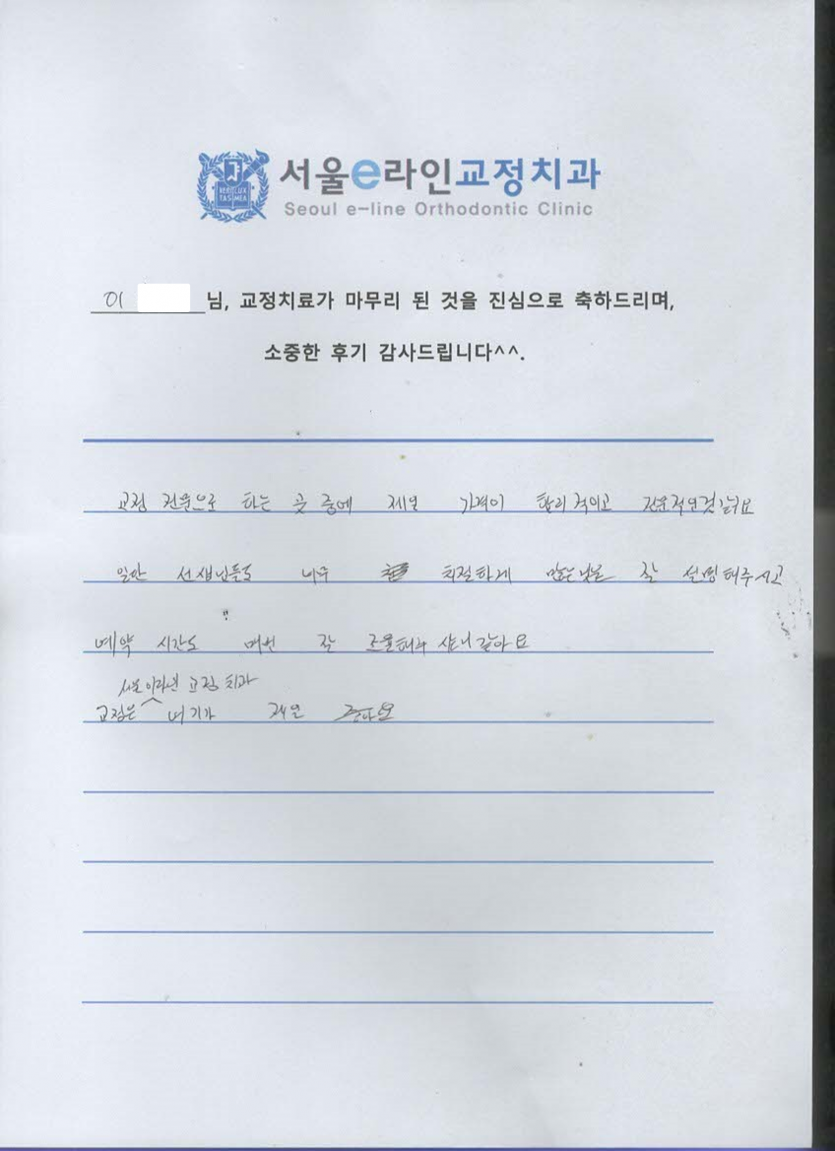 서울e라인교정치과
Seoul e-line Orthodontic Clinic
이 님, 교정치료가 마무리 된 것을 진심으로 축하드리며,
소중한 후기 감사드립니다^^.
교정 전문으로 하는 곳 중에 제일 가격이 합리적이고 전문적인것같아요
일단 선생님들도 너무 친절하게 잘 설명해주시고
예약 시간도 매번 잘 조율해
서울이라인 교정 치과
교정은 여기가 제일 좋아요